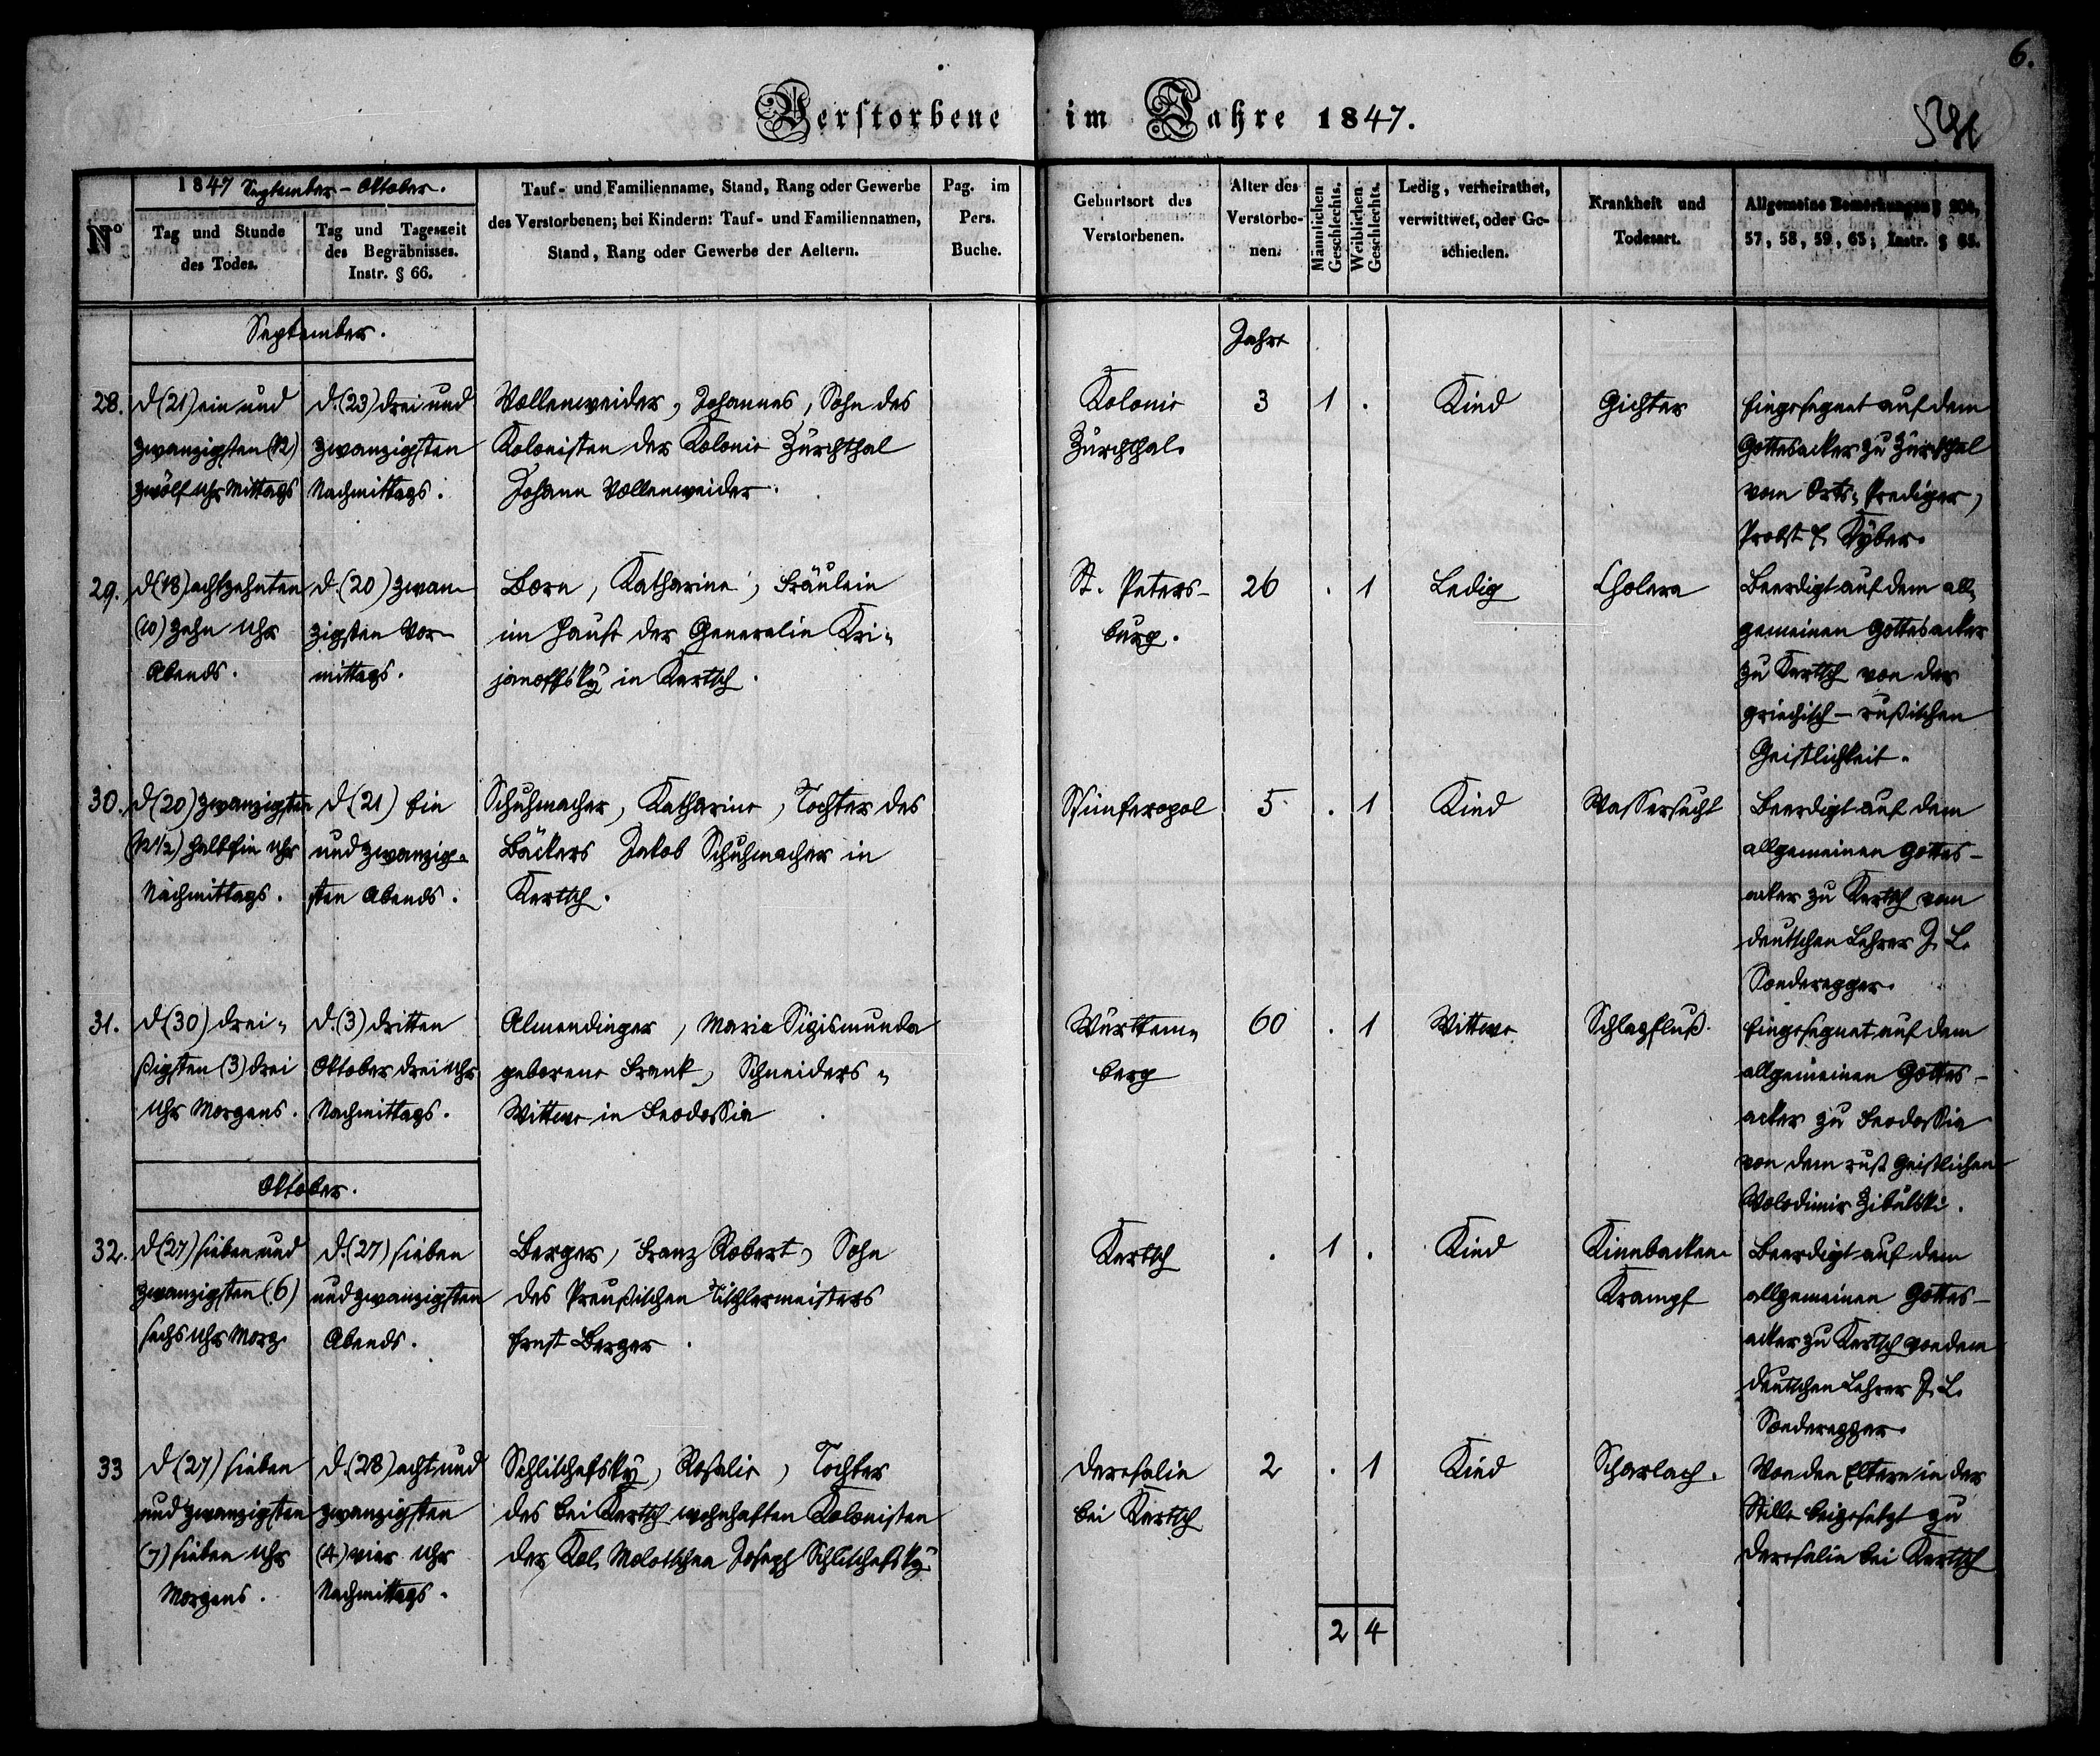 6.
Verstorbene im Jahre 1847.
No
1847 September - Oktober.
Tag und Stunde
des Todes.
Tag und Tageszeit
des Begräbnisses.
Instr. § 66.
Tauf- und Familienname, Stand, Rang oder Gewerbe
des Verstorbenen; bei Kindern: Tauf- und Familiennamen,
Stand, Rang oder Gewerbe der Aeltern.
Pag. im
Pers.
Buche.
Geburtsort des
Verstorbenen.
Alter des
Verstorbe-
nen.
Männlichen
Geschlechts.
Weiblichen
Geschlechts.
Ledig, verheirathet,
verwittwet, oder Ge-
schieden.
Krankheit und
Todesart.
Allgemeine Bemerkungen §
57, 58, 59, 65; Instr. §
September.
Jahre
28.
d (21) ein und
zwanzigsten (12)
zwölf Uhr Mittags
d. (23) drei und
zwanzigsten
Nachmittags.
Vollenweider, Johannes, Sohn des
Kolonisten der Kolonie Zürchthal
Johann Vollenweider.
Kolonie
Zürchthal.
3
1
.
Kind
Gichter
Eingesegnet auf dem
Gottesacker zu Zürchthal
vom Orts-Prediger,
Probst F. Kyber.
29.
d (18) achtzehnten
(10) zehn Uhr
Abends.
d. (20) zwan-
zigsten Vor-
mittags.
Born, Katharina, Fräulein
im Hause der Generalin Kri-
janoffsky in Kertsch.
St. Peters-
burg.
26
.
1
Ledig
Cholera
Beerdigt auf dem all-
gemeinen Gottesacker
zu Kertsch von der
griechisch-rußischen
Geistlichkeit.
30.
d (20) zwanzigsten
(12 1/2) halb ein Uhr
Nachmittags.
d (21) Ein
und zwanzig-
sten Abends.
Schuhmacher, Katharine, Tochter des
Bäckers Jakob Schuhmacher in
Kertsch.
Simferopol
5
.
1
Kind
Wassersucht
Beerdigt auf dem
allgemeinen Gottes-
acker zu Kertsch vom
deutschen Lehrer J. L.
Sonderegger.
31.
d (30) drei-
ßigsten (3) drei
Uhr Morgens.
d. (3) dritten
Oktober drei Uhr
Nachmittags.
Almendinger, Maria Sigismunda
geborene Frank, Schneiders-
Wittwe in Feodossia
Württem-
berg
60
.
1
Wittwe
Schlagfluß.
Eingesegnet auf dem
allgemeinen Gottes-
acker zu Feodossia
von dem ruß Geistlichen
Wolodimir Zibulski.
Oktober.
32.
d (27) sieben und
zwanzigsten (6)
sechs Uhr Morg.
d. (27) sieben
und zwanzigsten
Abends.
Berger, Franz Robert, Sohn
des Preußischen Tischlermeisters
Ernst Berger.
Kertsch
.
1
.
Kind
Kinnbacken-
Krampf
Beerdigt auf dem
allgemeinen Gottes-
acker zu Kertsch von dem
deutschen Lehrer J. L.
Sonderegger.
33
d (27) sieben
und zwanzigsten
(7) sieben Uhr
Morgens.
d. (28) acht und
zwanzigsten
(4) vier Uhr
Nachmittags.
Schlischefsky, Rosalie, Tochter
des bei Kertsch wohnhaften Kolonisten
der Kol. Molotschna Joseph Schlischefsky
Deresalia
bei Kertsch
2
.
1
Kind
Scharlach.
Von den Eltern in der
Stille beigesetzt zu
Deresalia bei Kertsch
2
4